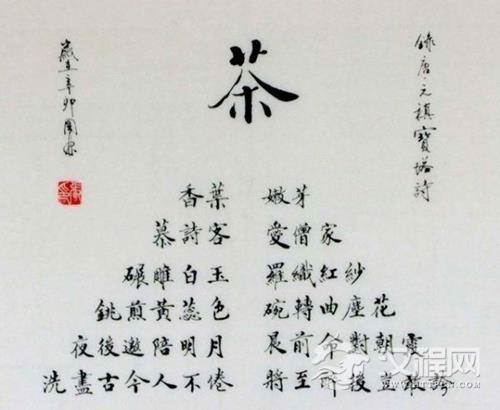 錄唐元稹寶塔詩
茶
香葉 嫩芽
慕詩客 愛僧家
碾雕白玉 羅織紅紗
銚煎黃蕊色 碗轉曲塵花
夜後邀陪明月 晨前命對朝霞
洗盡古今人不倦 將至 後豈
歲在辛卯